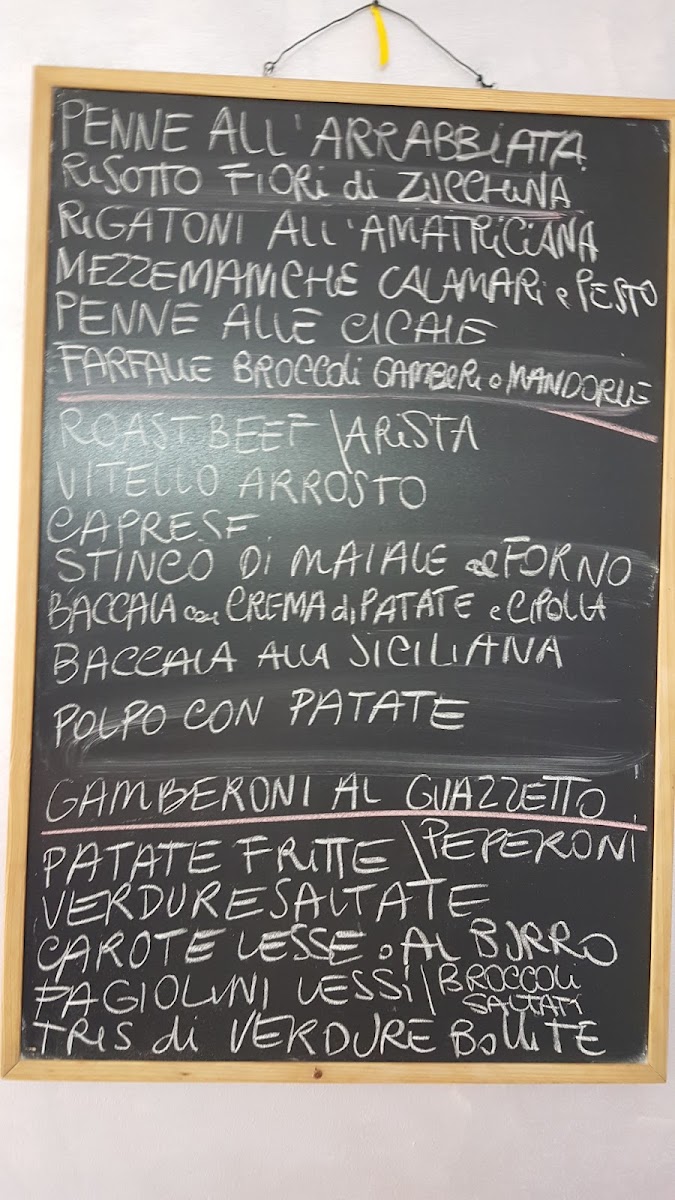 PENNE ALL'ARRABBIATA
RISOTTO FIORI di ZUCCHINA
RIGATONI ALL'AMATRICIANA
MEZZEMANICHE CALAMARI e PESTO
PENNE ALLE CICALE
FARFALLE BROCCOLI GAMBERI e MANDORLE
ROAST BEEF \ ARISTA
VITELLO ARROSTO
CAPRESE
STINCO DI MAIALE al FORNO
BACCALA con CREMA di PATATE e CIPOLLA
BACCALA ALLA SICILIANA
POLPO CON PATATE
GAMBERONI AL GUAZZETTO
PATATE FRITTE \ PEPERONI
VERDURE SALTATE
CAROTE LESSE o AL BURRO
FAGIOLINI LESSI \ BROCCOLI SALTATI
TRIS di VERDURE BOLLITE